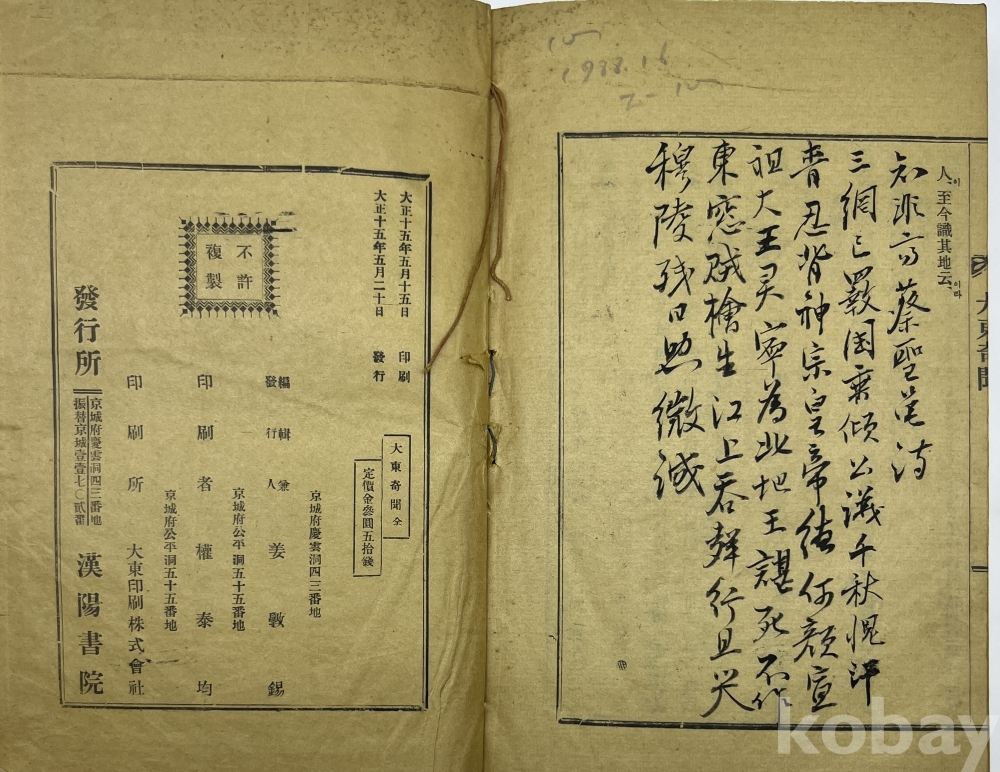 1988.16
人、至今識其地云、
이
이라
大東奇聞
知非 蔡聖 詩
三綱已斁國垂傾公議千秋愧汗
青忍背神宗皇帝德何顔宣
祖大王灵寧為此地王諶死不作
東窓賊檜生江上吞聲行且哭
穆陵殘日照微誠
大正十五年五月十五日 印刷
大正十五年五月二十日 發行
不許複製
大東奇聞 全
定價金參圓五拾錢
京城府慶雲洞四三番地
編輯兼發行人 姜斅錫
京城府公平洞五十五番地
印刷者 權泰均
京城府公平洞五十五番地
印刷所 大東印刷株式會社
發行所
京城府慶雲洞四三番地
振替京城壹壹七〇貳番
漢陽書院
kobay